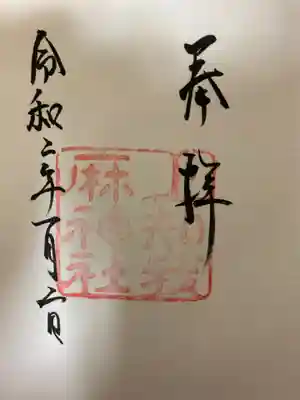 奉拝
令和二年一月二日
麻神社